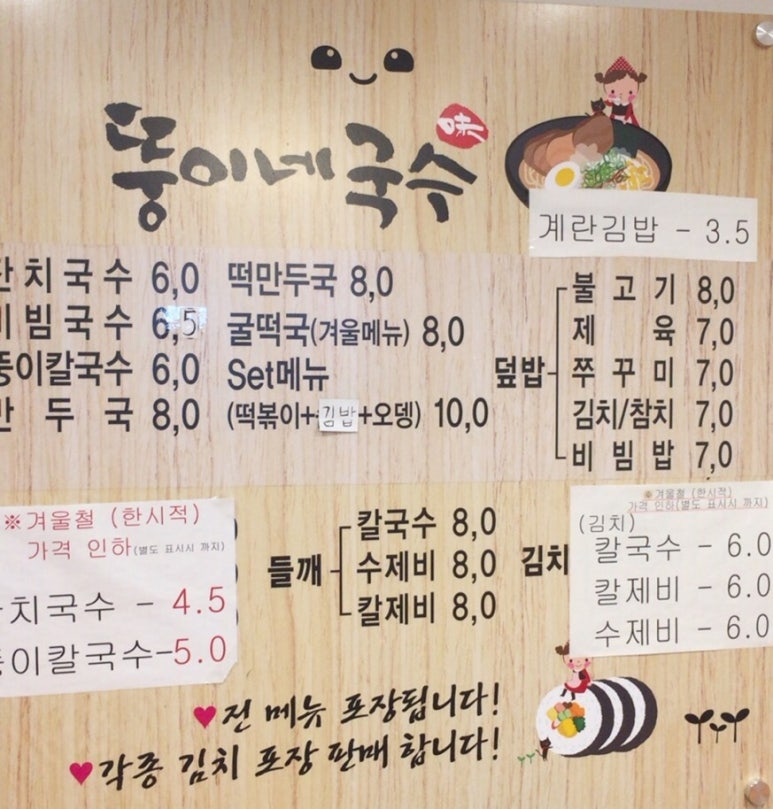 뚱이네 국수 味
계란김밥 - 3.5
치국수 6,0
빔국수 6,5
이칼국수 6,0
두국 8,0
떡만두국 8,0
굴떡국(겨울메뉴) 8,0
Set메뉴
(떡볶이+김밥+오뎅) 10,0
덮밥
불고기 8,0
제육 7,0
쭈꾸미 7,0
김치/참치 7,0
비빔밥 7,0
※겨울철 (한시적)
가격 인하(별도 표시시 까지)
치국수 - 4.5
이칼국수-5.0
들깨
칼국수 8,0
수제비 8,0
칼제비 8,0
김치
※겨울철 (한시적)
가격 인하(별도 표시시 까지)
(김치)
칼국수 - 6.0
칼제비 - 6.0
수제비 - 6.0
♥전 메뉴 포장됩니다!
♥각종 김치 포장 판매 합니다!